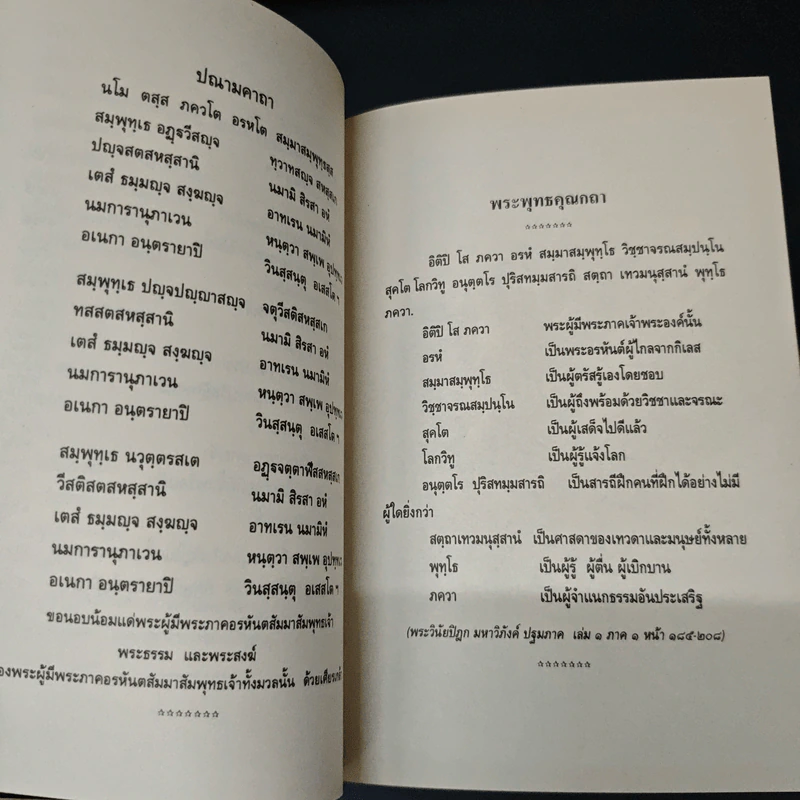 ปณามคาถา
นโม ตสฺส ภควโต อรหโต สมฺมาสมฺพุทฺธสฺส
สมฺพุทฺเธ อฏฺฐวีสญฺจ ทฺวาทสญฺจ สหสฺสเก
ปญฺจสตสหสฺสานิ นมามิ สิรสา อหํ
เตสํ ธมฺมญฺจ สงฺฆญฺจ อาทเรน นมามิหํ
นมการานุภาเวน หนฺตฺวา สพฺเพ อุปทฺทเว
อเนกา อนฺตรายาปิ วินสฺสนฺตุ อเสสโต ฯ
สมฺพุทฺเธ ปญฺจปญฺญาสญฺจ จตุวีสติสหสฺสเก
ทสสตสหสฺสานิ นมามิ สิรสา อหํ
เตสํ ธมฺมญฺจ สงฺฆญฺจ อาทเรน นมามิหํ
นมการานุภาเวน หนฺตฺวา สพฺเพ อุปทฺทเว
อเนกา อนฺตรายาปิ วินสฺสนฺตุ อเสสโต ฯ
สมฺพุทฺเธ นวุตฺตรสเต อฏฺฐจตฺตาฬีสสหสฺสเก
วีสติสตสหสฺสานิ นมามิ สิรสา อหํ
เตสํ ธมฺมญฺจ สงฺฆญฺจ อาทเรน นมามิหํ
นมการานุภาเวน หนฺตฺวา สพฺเพ อุปทฺทเว
อเนกา อนฺตรายาปิ วินสฺสนฺตุ อเสสโต ฯ
ขอนอบน้อมแด่พระผู้มีพระภาคอรหันตสัมมาสัมพุทธเจ้า
พระธรรม และพระสงฆ์
องพระผู้มีพระภาคอรหันตสัมมาสัมพุทธเจ้าทั้งมวลนั้น ด้วยเศียรเกล้า
พระพุทธคุณกถา
อิติปิ โส ภควา อรหํ สมฺมาสมฺพุทฺโธ วิชฺชาจรณสมฺปนฺโน
สุคโต โลกวิทู อนุตฺตโร ปุริสทมฺมสารถิ สตฺถา เทวมนุสฺสานํ พุทฺโธ
ภควา.
อิติปิ โส ภควา พระผู้มีพระภาคเจ้าพระองค์นั้น
อรหํ เป็นพระอรหันต์ผู้ไกลจากกิเลส
สมฺมาสมฺพุทฺโธ เป็นผู้ตรัสรู้เองโดยชอบ
วิชฺชาจรณสมฺปนฺโน เป็นผู้ถึงพร้อมด้วยวิชชาและจรณะ
สุคโต เป็นผู้เสด็จไปดีแล้ว
โลกวิทู เป็นผู้รู้แจ้งโลก
อนุตฺตโร ปุริสทมฺมสารถิ เป็นสารถีฝึกคนที่ฝึกได้อย่างไม่มี
ผู้ใดยิ่งกว่า
สตฺถาเทวมนุสฺสานํ เป็นศาสดาของเทวดาและมนุษย์ทั้งหลาย
พุทฺโธ เป็นผู้รู้ ผู้ตื่น ผู้เบิกบาน
ภควา เป็นผู้จำแนกธรรมอันประเสริฐ
(พระวินัยปิฎก มหาวิภังค์ ปฐมภาค เล่ม ๑ ภาค ๑ หน้า ๑๘๕-๒๐๘)